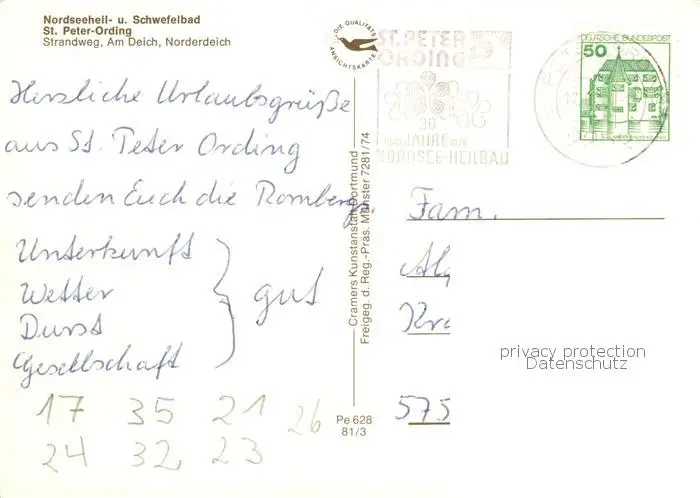 Nordseeheil- u. Schwefelbad
St. Peter-Ording
Strandweg, Am Deich, Norderdeich
DIE QUALITÄTS
ANSICHTSKARTE
ST. PETER
ORDING
30
JAHRE
NORDSEE-HEILBAD
DEUTSCHE BUNDESPOST
50
Herzliche Urlaubsgrüße
aus St. Peter Ording
senden Euch die Rombergs.
Unterkunft
Wetter
Durst
Gesellschaft
gut
17 35 21 26
24 32, 23
Cramers Kunstanstalt Dortmund
Freigeg. d. Reg.-Präs. Münster 7281/74
Pe 628
81/3
Fam.
575
privacy protection
Datenschutz